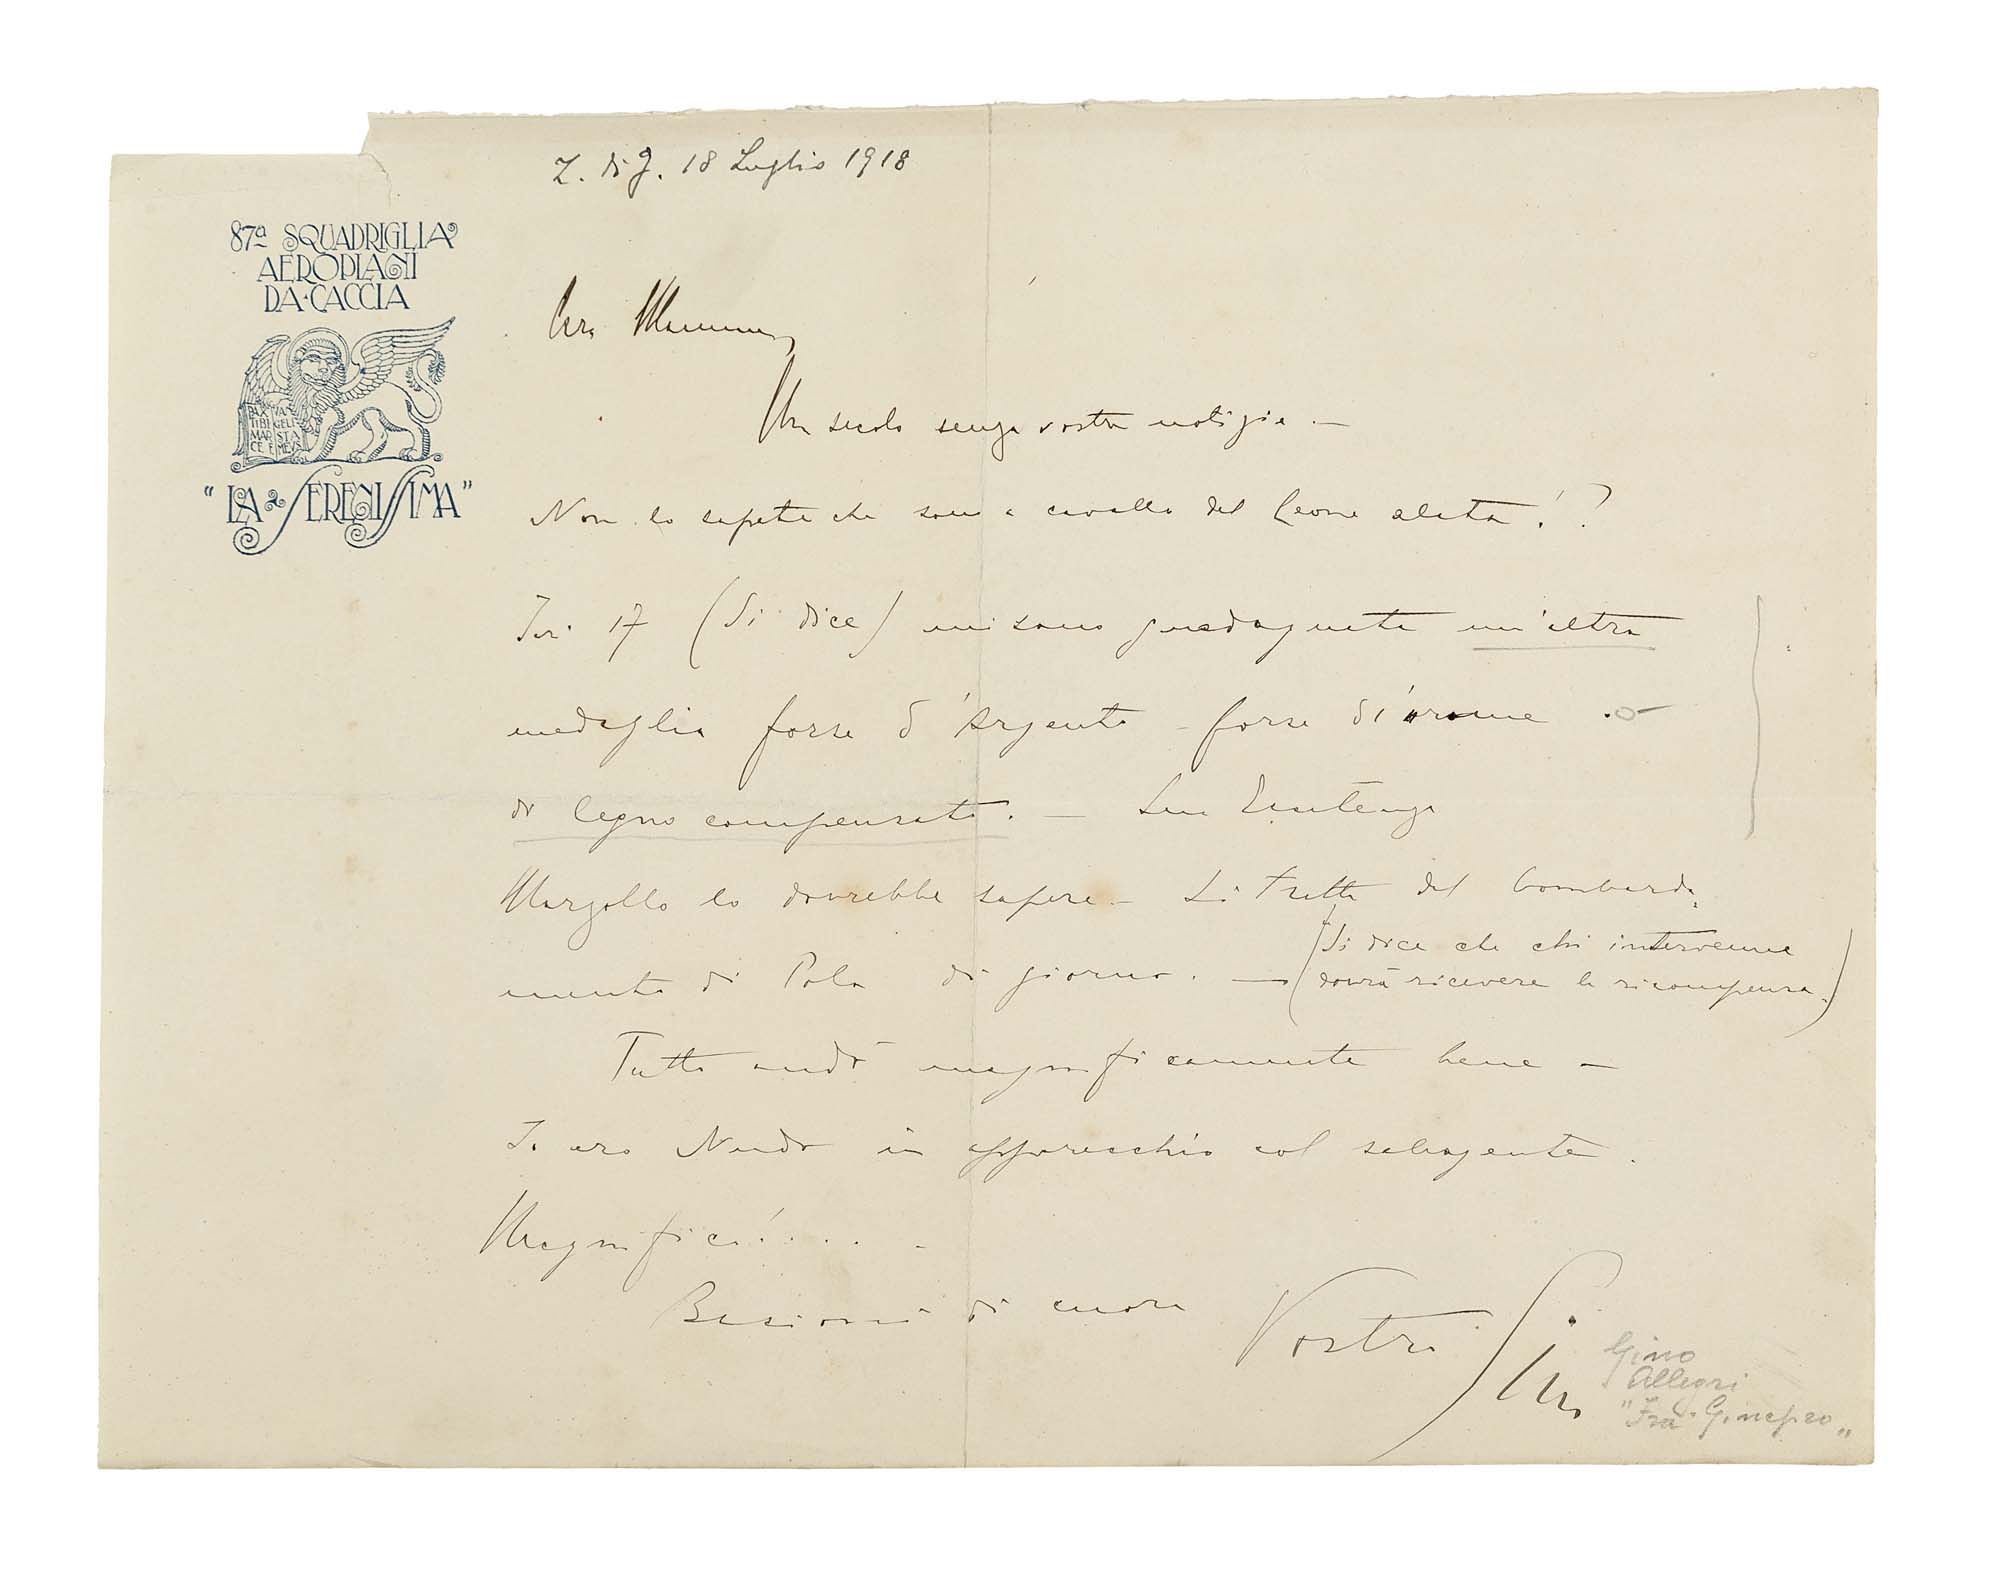 Z. di G. 18 Luglio 1918
87a SQUADRIGLIA
AEROPLANI
DA·CACCIA
PAX TIBI MARCE E VANGELISTA MEVS
"LA SERENISSIMA"
Cara Mamma,
Un secolo senza vostre notizie. —
Non lo sapete che sono a cavallo del Leone alato!?
Ieri 17 (Si dice) mi sono guadagnato un'altra
medaglia forse d'argento - forse di rame o
di legno compensato. — Sua
lo dovrebbe sapere — Si tratta del bombarda-
mento di Pola di giorno. — (Si dice che chi intervenne
dovrà ricevere la ricompensa.)
Tutto andò magnificamente bene —
Io ero Nudo in apparecchio col salvagente.
Magnifico!....
Bacioni di cuore Vostro Gino
Gino
Allegri
"Fra Ginepro"